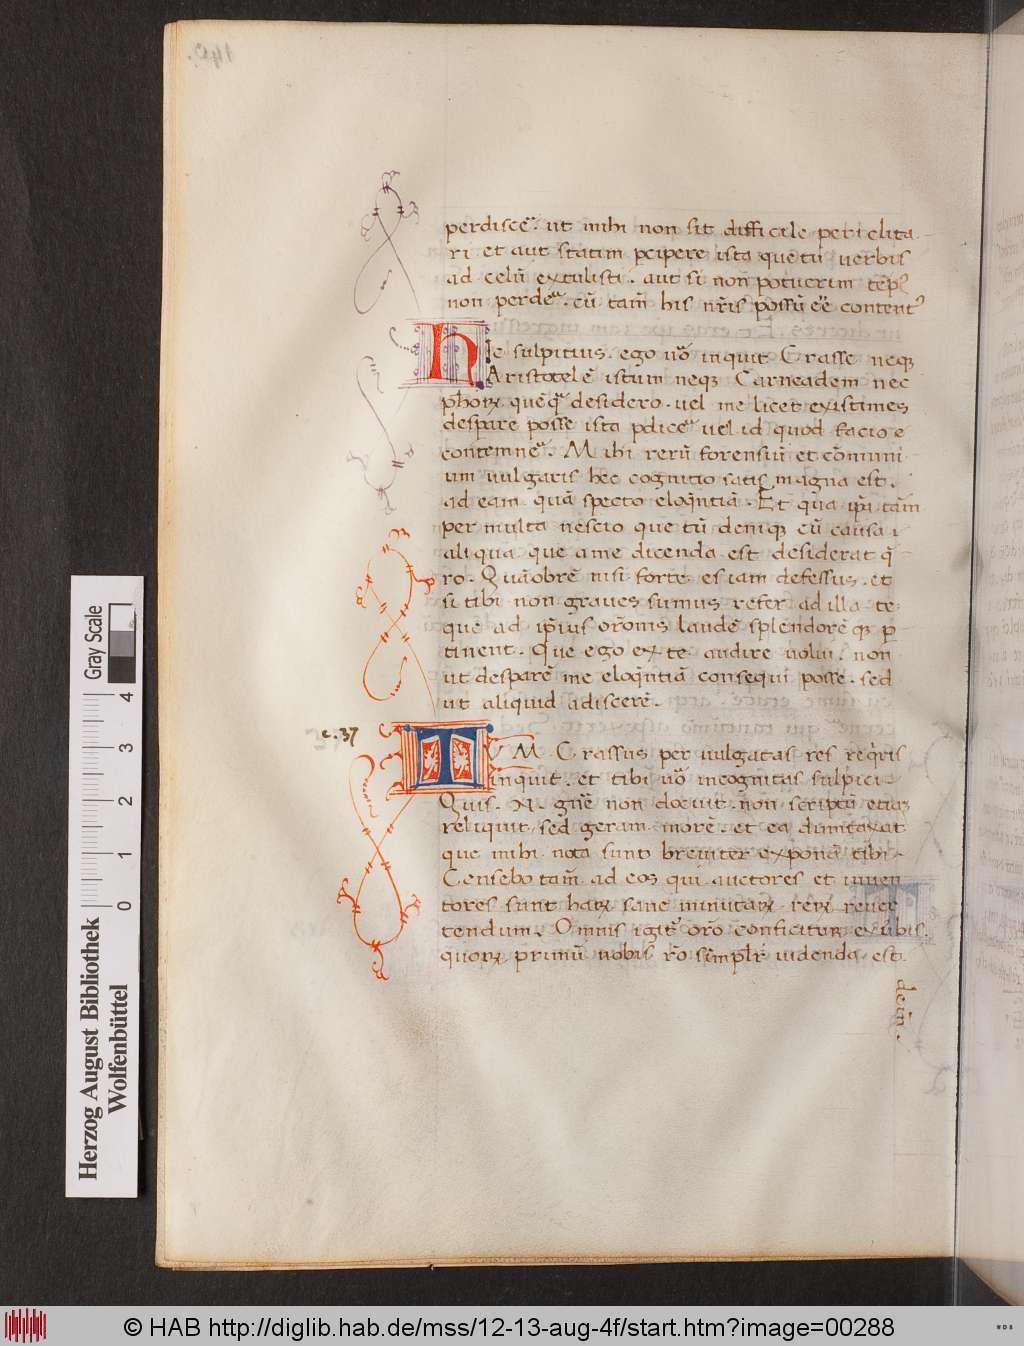 perdiscẽ. ut mihi non sit difficile periclita
ri. et aut statim pcipere ista que tũ verbis
ad celũ extulisti. aut si non potuerim tẽpl
non perdẽ. cũ tam̃ his nr̃is possũ eẽ content᾽
hic sulpitius. ego uo᷑ inquit Crasse neqꝫ
Aristotelẽ istum neqꝫ Carneadem nec
ph̃orꝝ quẽq᷑ desidero. vel me licet existimes
despare posse ista pdicẽ vel id quod facio
contemnẽ. Mihi rerũ forensiũ et cõmuni
um vulgaris hec cognitio satis magna est.
ad eam quã specto eloq̃ntiã. Et qua ip̃i tam̃
per multa nescio que tũ deniqꝫ cũ causa ĩ
aliqua que a me dicenda est desiderat q̃
ro. Quãobrẽ nisi forte es iam defessus. et
si tibi non graves sumus refer ad illa te.
que ad ip̃ius or̃onis laudẽ splendorẽ qꝫ p̱
tinent. Que ego ex te audire uolui. non
ut desparẽ me eloq̃ntiã consequi posse. sed
ut aliquid adiscerẽ.
c. 37
TVM Crassus per vulgatas res req̃ris
inquit. et tibi uo᷑ incognitas sulpici
Quis. N. gñe non docuit. non scriptũ etiaꝫ
reliquit. sed geram morẽ. et ea dumtaxat
que mihi nota sunt breviter exponã tibi.
Censebo tam̃ ad eos qui auctores et inven
tores sunt harꝝ sane minutarꝝ rerꝝ rever
tendum. Omnis igit᷑ or̃o conficitur ex vbis.
quorꝝ primũ nobis rõ simpl̃r videnda est.
dein̄.
Gray Scale
4
3
2
1
0
Herzog August Bibliothek
Wolfenbüttel
© HAB http://diglib.hab.de/mss/12-13-aug-4f/start.htm?image=00288